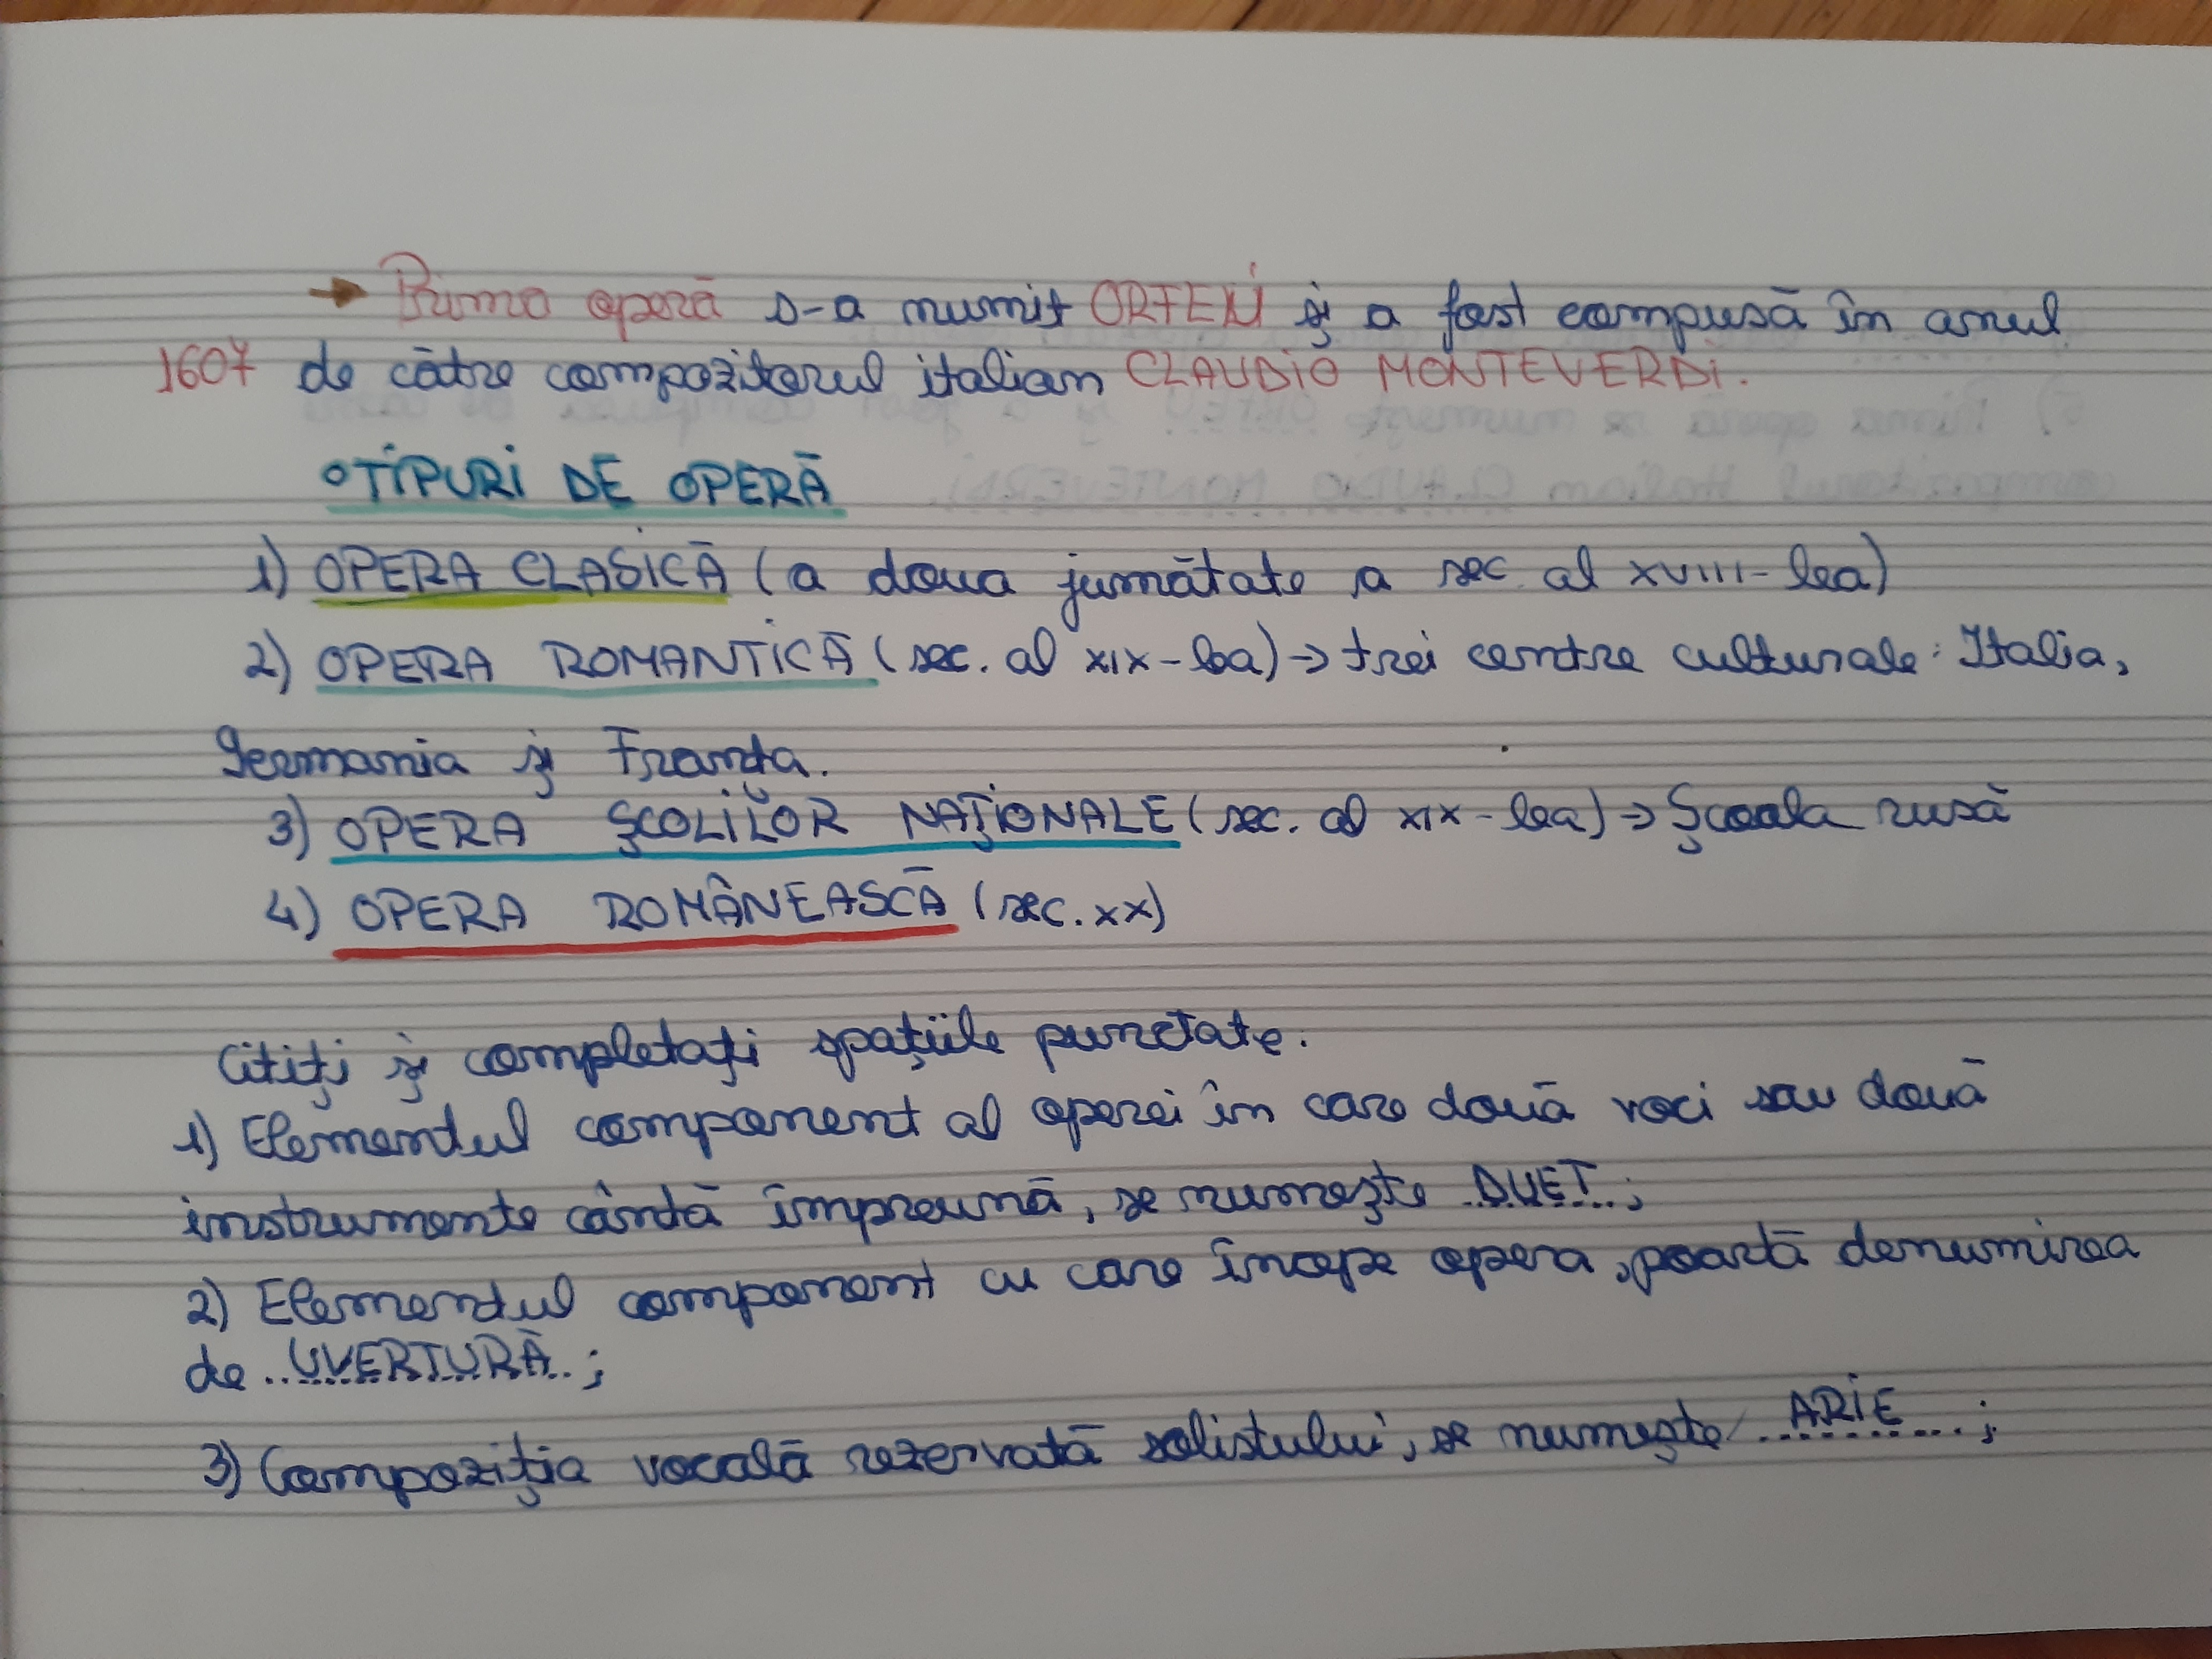 → Prima operă s-a numit ORFEU și a fost compusă în anul
1607 de către compozitorul italian CLAUDIO MONTEVERDI.
°TIPURI DE OPERĂ
1) OPERA CLASICĂ (a doua jumătate a sec. al XVIII-lea)
2) OPERA ROMANTICĂ (sec. al XIX-lea) → trei centre culturale: Italia,
Germania și Franta.
3) OPERA ȘCOLILOR NAȚIONALE (sec. al XIX-lea) → Școala rusă
4) OPERA ROMÂNEASCĂ (sec. XX)
Citiți și completați spațiile punctate.
1) Elementul component al operei în care două voci sau două
instrumente cântă împreună, se numește ..DUET..;
2) Elementul component cu care începe opera, poartă denumirea
de ..UVERTURĂ..;
3) Compoziția vocală rezervată solistului, se numește ..ARIE..;